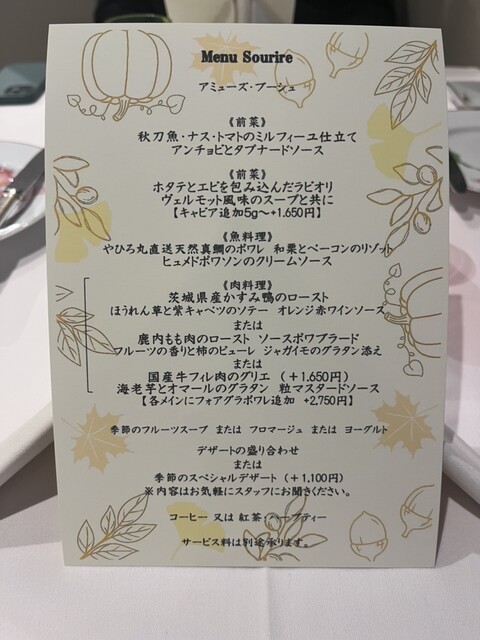 Menu Sourire
アミューズ・ブーシュ
《前菜》
秋刀魚・ナス・トマトのミルフィーユ仕立て
アンチョビとタプナードソース
《前菜》
ホタテとエビを包み込んだラビオリ
ヴェルモット風味のスープと共に
【キャビア追加5g～+1,650円】
《魚料理》
やひろ丸直送天然真鯛のポワレ 和栗とベーコンのリゾット
ヒュメドポワソンのクリームソース
《肉料理》
茨城県産かすみ鴨のロースト
ほうれん草と紫キャベツのソテー オレンジ赤ワインソース
または
鹿内もも肉のロースト ソースポワブラード
フルーツの香りと柿のピューレ ジャガイモのグラタン添え
または
国産牛フィレ肉のグリエ （＋1,650円）
海老芋とオマールのグラタン 粒マスタードソース
【各メインにフォアグラポワレ追加 +2,750円】
季節のフルーツスープ または フロマージュ または ヨーグルト
デザートの盛り合わせ
または
季節のスペシャルデザート（＋1,100円）
※内容はお気軽にスタッフにお聞きください。
コーヒー 又は 紅茶・ハーブティー
サービス料は別途承ります。